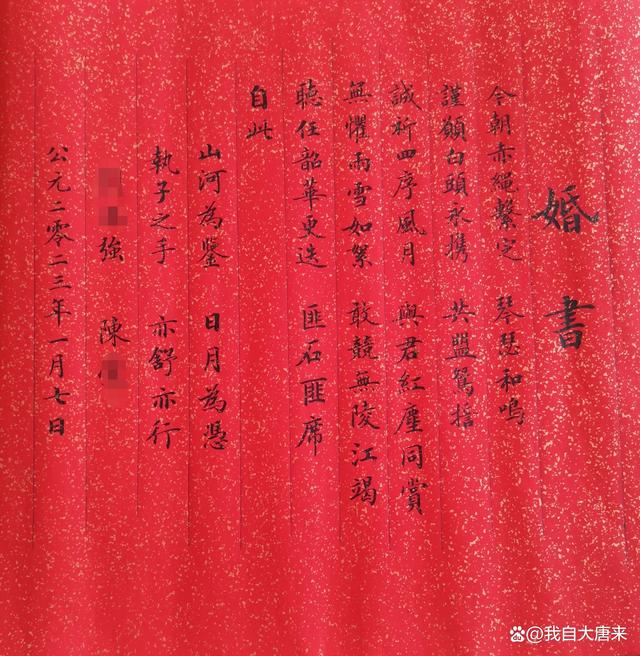 婚書
今朝赤繩繫定 琴瑟和鳴
謹願白頭永携 共盟鴛牾
誠祈四序風月 與君紅塵同賞
無懼雨雪如絮 敢競無陵江竭
聴任韶華更迭 匪石匪席
自此
山河為鑒 日月為憑
執子之手 亦舒亦行
強 陳
公元二零二三年一月七日
@我自大唐来